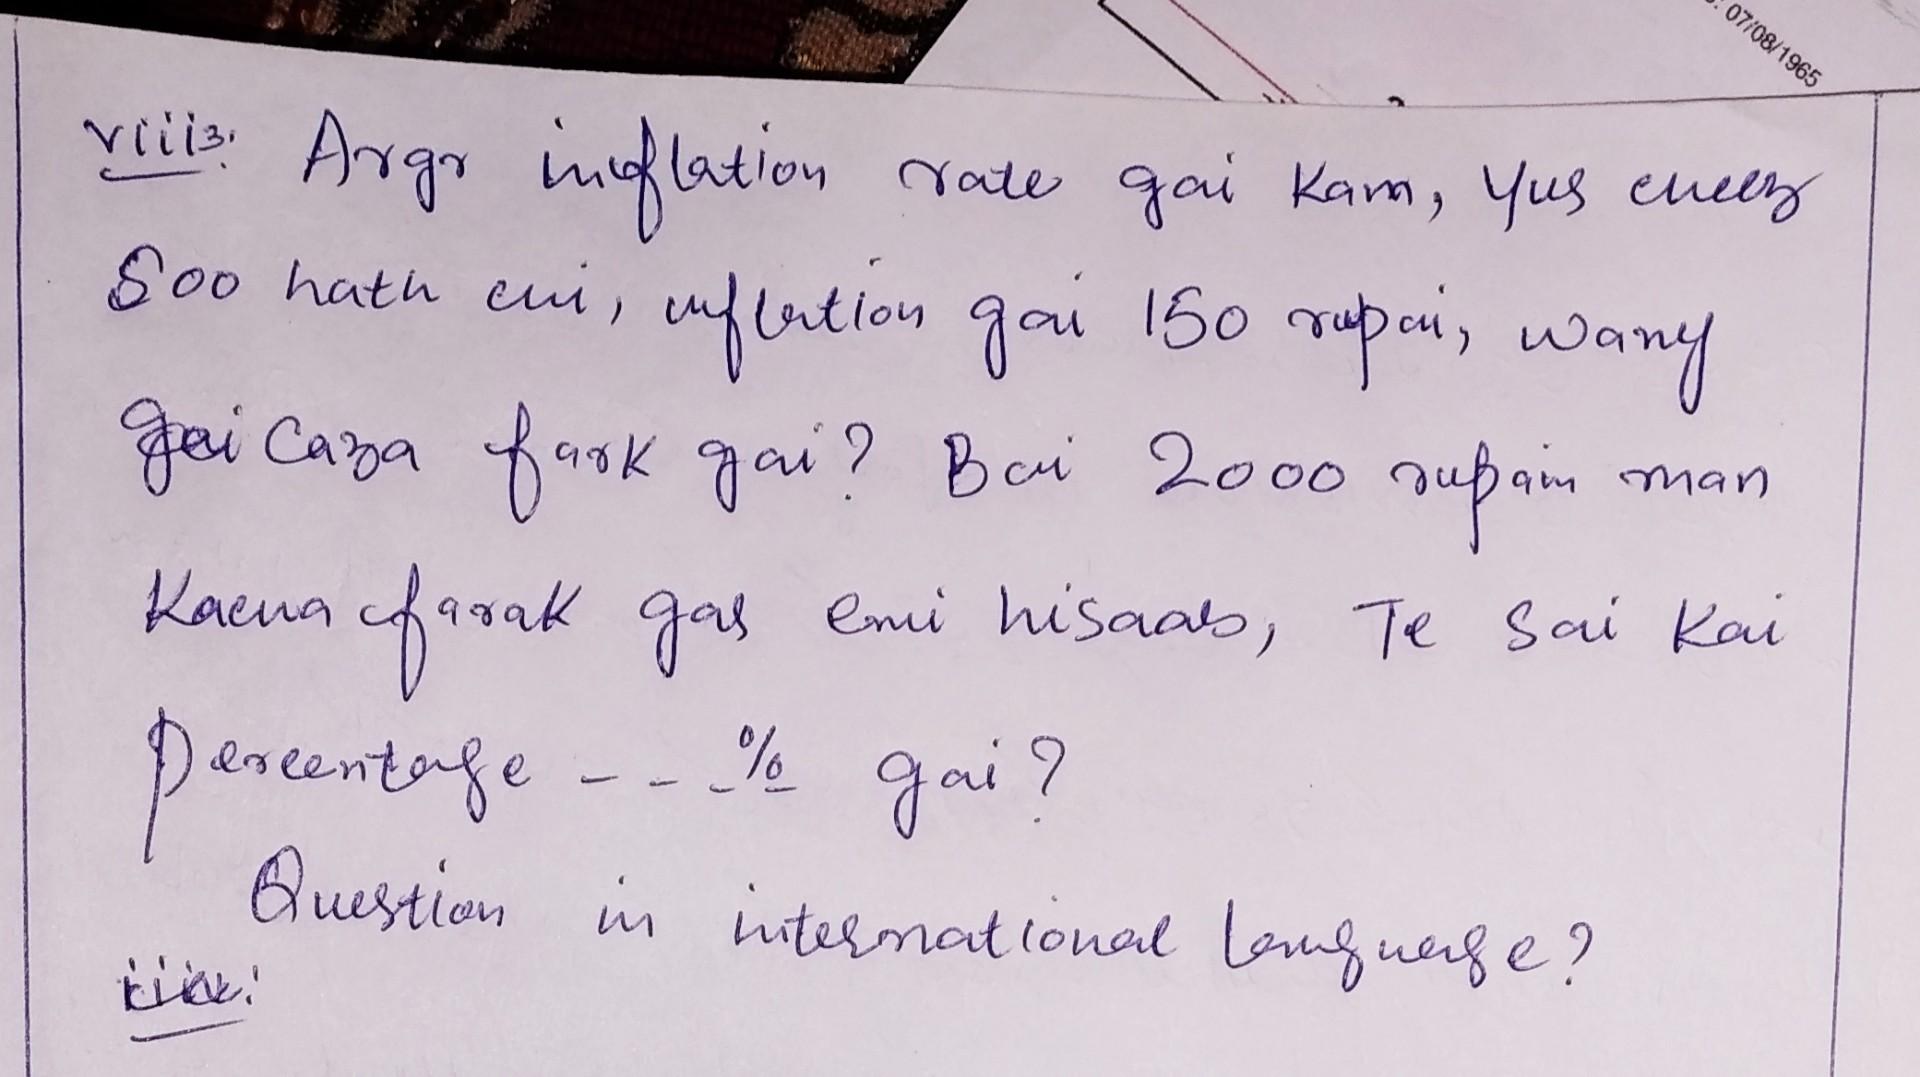 : 07/08/1965
viii3: Argr inflation rate gai Kam, Yus cheez
500 hath chi, inflation gai 150 rupai, wany
gai Caza fark gai? Bai 2000 rupain man
Kacha farak gas emi hisaab, Te Sai Kai
Percentage - - -% gai?
Question in international language?